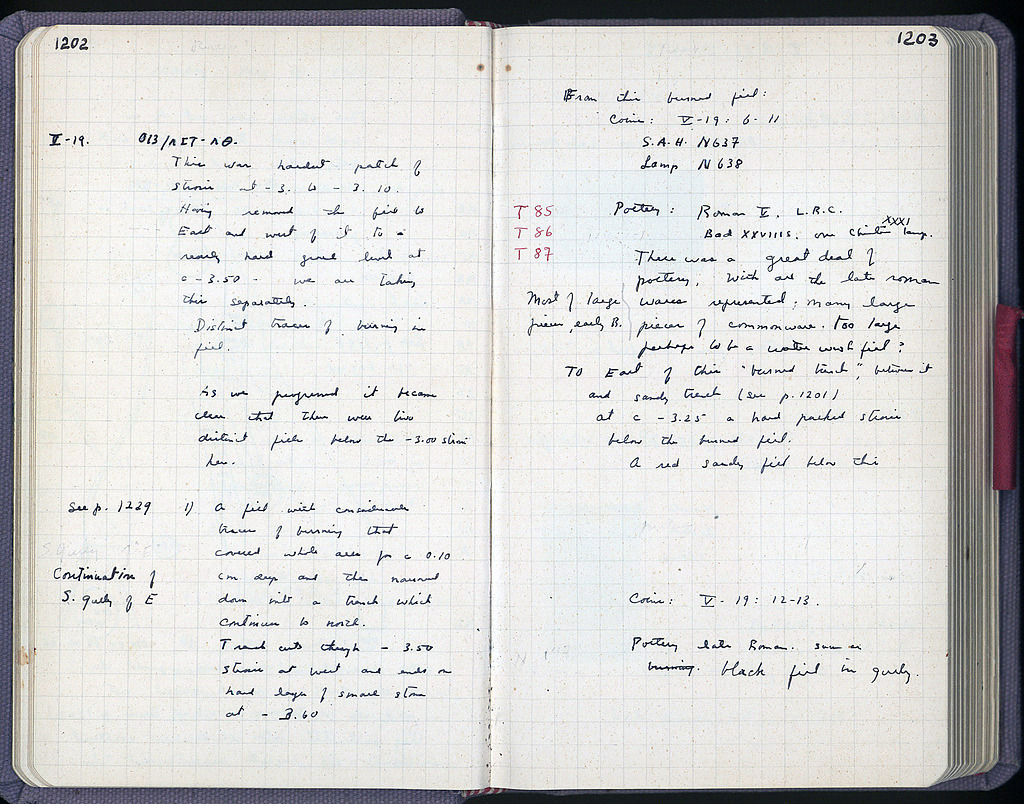 1202
V-19. O13/ΛΣΤ-ΛΘ.
This was hardest patch of
strosis at -3. to -3.10.
Having removed the fill to
East and west of it to a
nearly hard ground level at
c -3.50 - we are taking
this separately.
Distinct traces of burning in
fill.
As we progressed it became
clear that there were two
distinct fills below the -3.00 strosis
here.
See p. 1229 1) A fill with considerable
traces of burning that
covered whole area for c 0.10
Continuation of
S. gully of E
cm deep and then narrowed
down into a trench which
continues to north.
Trench cuts through - 3.50
strosis at west and ends on
hard layer of small stone
at - 3.60
1203
From this burned fill:
Coins: V-19: 6-11
S.A.H. N637
Lamp N638
T 85
T 86
T 87
Pottery: Roman V. L.R.C.
Bad XXVIIIs. one Christian XXXI lamp.
There was a great deal of
pottery, with all the late roman
wares represented; many large
Most of large
pieces, early B.
pieces of commonware. Too large
perhaps to be a water wash fill?
To East of this "burned trench", between it
and sandy trench (see p. 1201)
at c -3.25 a hard packed strosis
below the burned fill.
A red sandy fill below this
Coins: V-19: 12-13.
Pottery late Roman. same as
burning. black fill in gully.